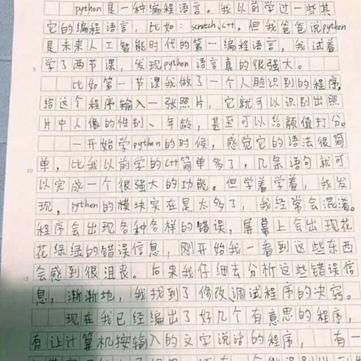 python是一种编程语言。我以前学过一些其
它的编程语言，比如：scratch、c++。但我爸爸说python
是未来人工智能时代的第一编程语言，我试着
学了两节课，发现python语言真的很强大。
比如第一节课我做了一个人脸识别的程序，
给这个程序输入一张照片，它就可以识别出照
片中人像的性别、年龄，甚至可以给颜值打分。
一开始学python的时候，感觉它的语法很简
单，比我以前学的c++简单多了，几条语句就可
以完成一个很强大的功能。但学着学着，我发
现，python的模块实在是太多了，我经常会混淆。
程序会出现各种各样的错误，屏幕上会出现花
花绿绿的错误信息，刚开始我一看到这些东西
会感到很沮丧。后来我仔细去分析这些错误信
息，渐渐地，我找到了修改调试程序的决窍。
现在我已经编出了好几个有意思的程序，
有让计算机按输入的文字说话的程序，有